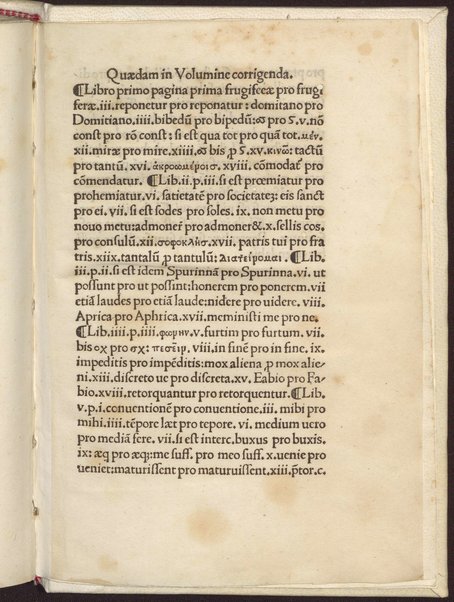 Quædam in Volumine corrigenda.
¶Libro primo pagina prima frugifeeæ pro frugi
feræ.iii.reponetur pro reponatur: domitano pro
Domitiano.iiii.bibedũ pro bipedũ:ϖ pro ϛ.v.nõ
const pro rõ const: si est qua tot pro quã tot.μέν.
xii.miræ pro mire.xiiii.ϖ bis ꝓ ϛ.xv.κινῶ: tactũ
pro tantũ. xvi. ἀκροωμένοισ. xviii. cõmodat᷒ pro
cõmendatur. ¶Lib.ii.p.iii.si est procemiatur pro
prohemiatur.vi. satietatẽ pro societatẽ: eis sanct
pro ei. vii. si est sodes pro soles. ix. non metu pro
nouo metu:admoner pro admoner&.x.sellis cos.
pro consulũ.xii.σοφοκλῆσ.xvii. patris tui pro fra
tris.xiix.tantalũ ꝓ tantulũ: Διατείρομαι. ¶Lib.
iii.p.ii.si est idem Spurinnã pro Spurinna.vi. ut
possunt pro ut possint: honerem pro ponerem. vii
etiã laudes pro etiã laude: nidere pro uidere. viii.
Aprica pro Aphrica.xvii.meministi me pro ne.
¶Lib.iiii.p.iiii.φωμην.v.furtim pro furtum. vii.
bis οχ pro σχ: πεσεῖν. viii. in finẽ pro in fine. ix.
impeditis pro impẽditis: mox aliena ꝓ mox alie-
ni.xiii.discreto ue pro discreta.xv. Eabio pro Fa-
bio.xviii.retorquantur pro retorquentur.¶Lib.
v.p.i.conuentionẽ pro conuentione.iii. mibi pro
mihi.iiii.tẽpore læt pro tepore. vi. medium uero
pro mediã fere. vii.si est interc.buxus pro buxis.
ix: æq̃ pro æq;:me suff. pro meo suff. x.uenie pro
ueniet:maturissent pro maturuissent.xiii.p̃tor.c.